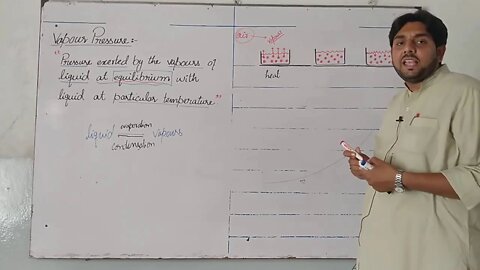 Vapour Pressure:-
"Pressure exerted by the vapours of
liquid at equilibrium with
liquid at particular temperature"
evaporation
liquid vapours
condensation
vapours
heat